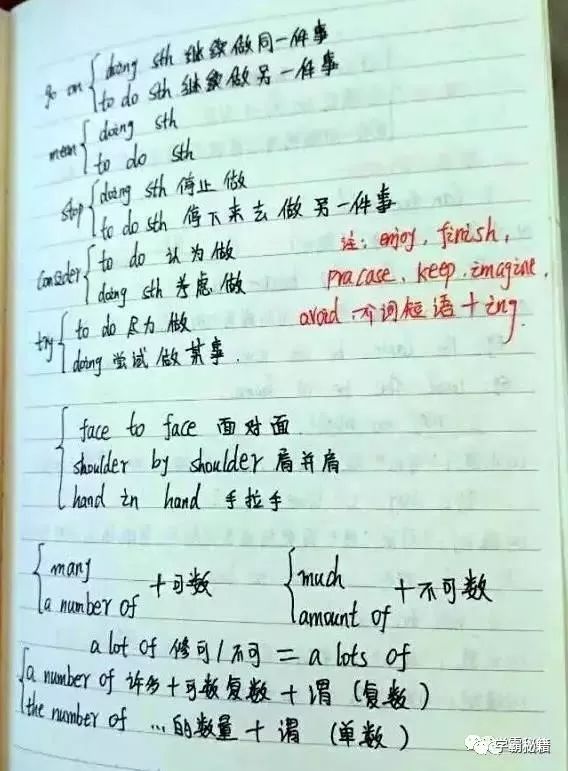 go on { doing sth 继续做同一件事
to do sth 继续做另一件事
mean { doing sth
to do sth
stop { doing sth 停止做
to do sth 停下来去做另一件事
consider { to do 认为做
doing sth 考虑做
注: enjoy, finish,
pracase, keep, imagine,
avoid, 介词短语 + ing.
try { to do 尽力做
doing 尝试做某事.
{ face to face 面对面
shoulder by shoulder 肩并肩
hand in hand 手拉手
{ many
a number of + 可数
{ much
amount of + 不可数
a lot of 修可/不可 = a lots of
{ a number of 许多 + 可数复数 + 谓 (复数)
the number of ...的数量 + 谓 (单数)
学霸秘籍